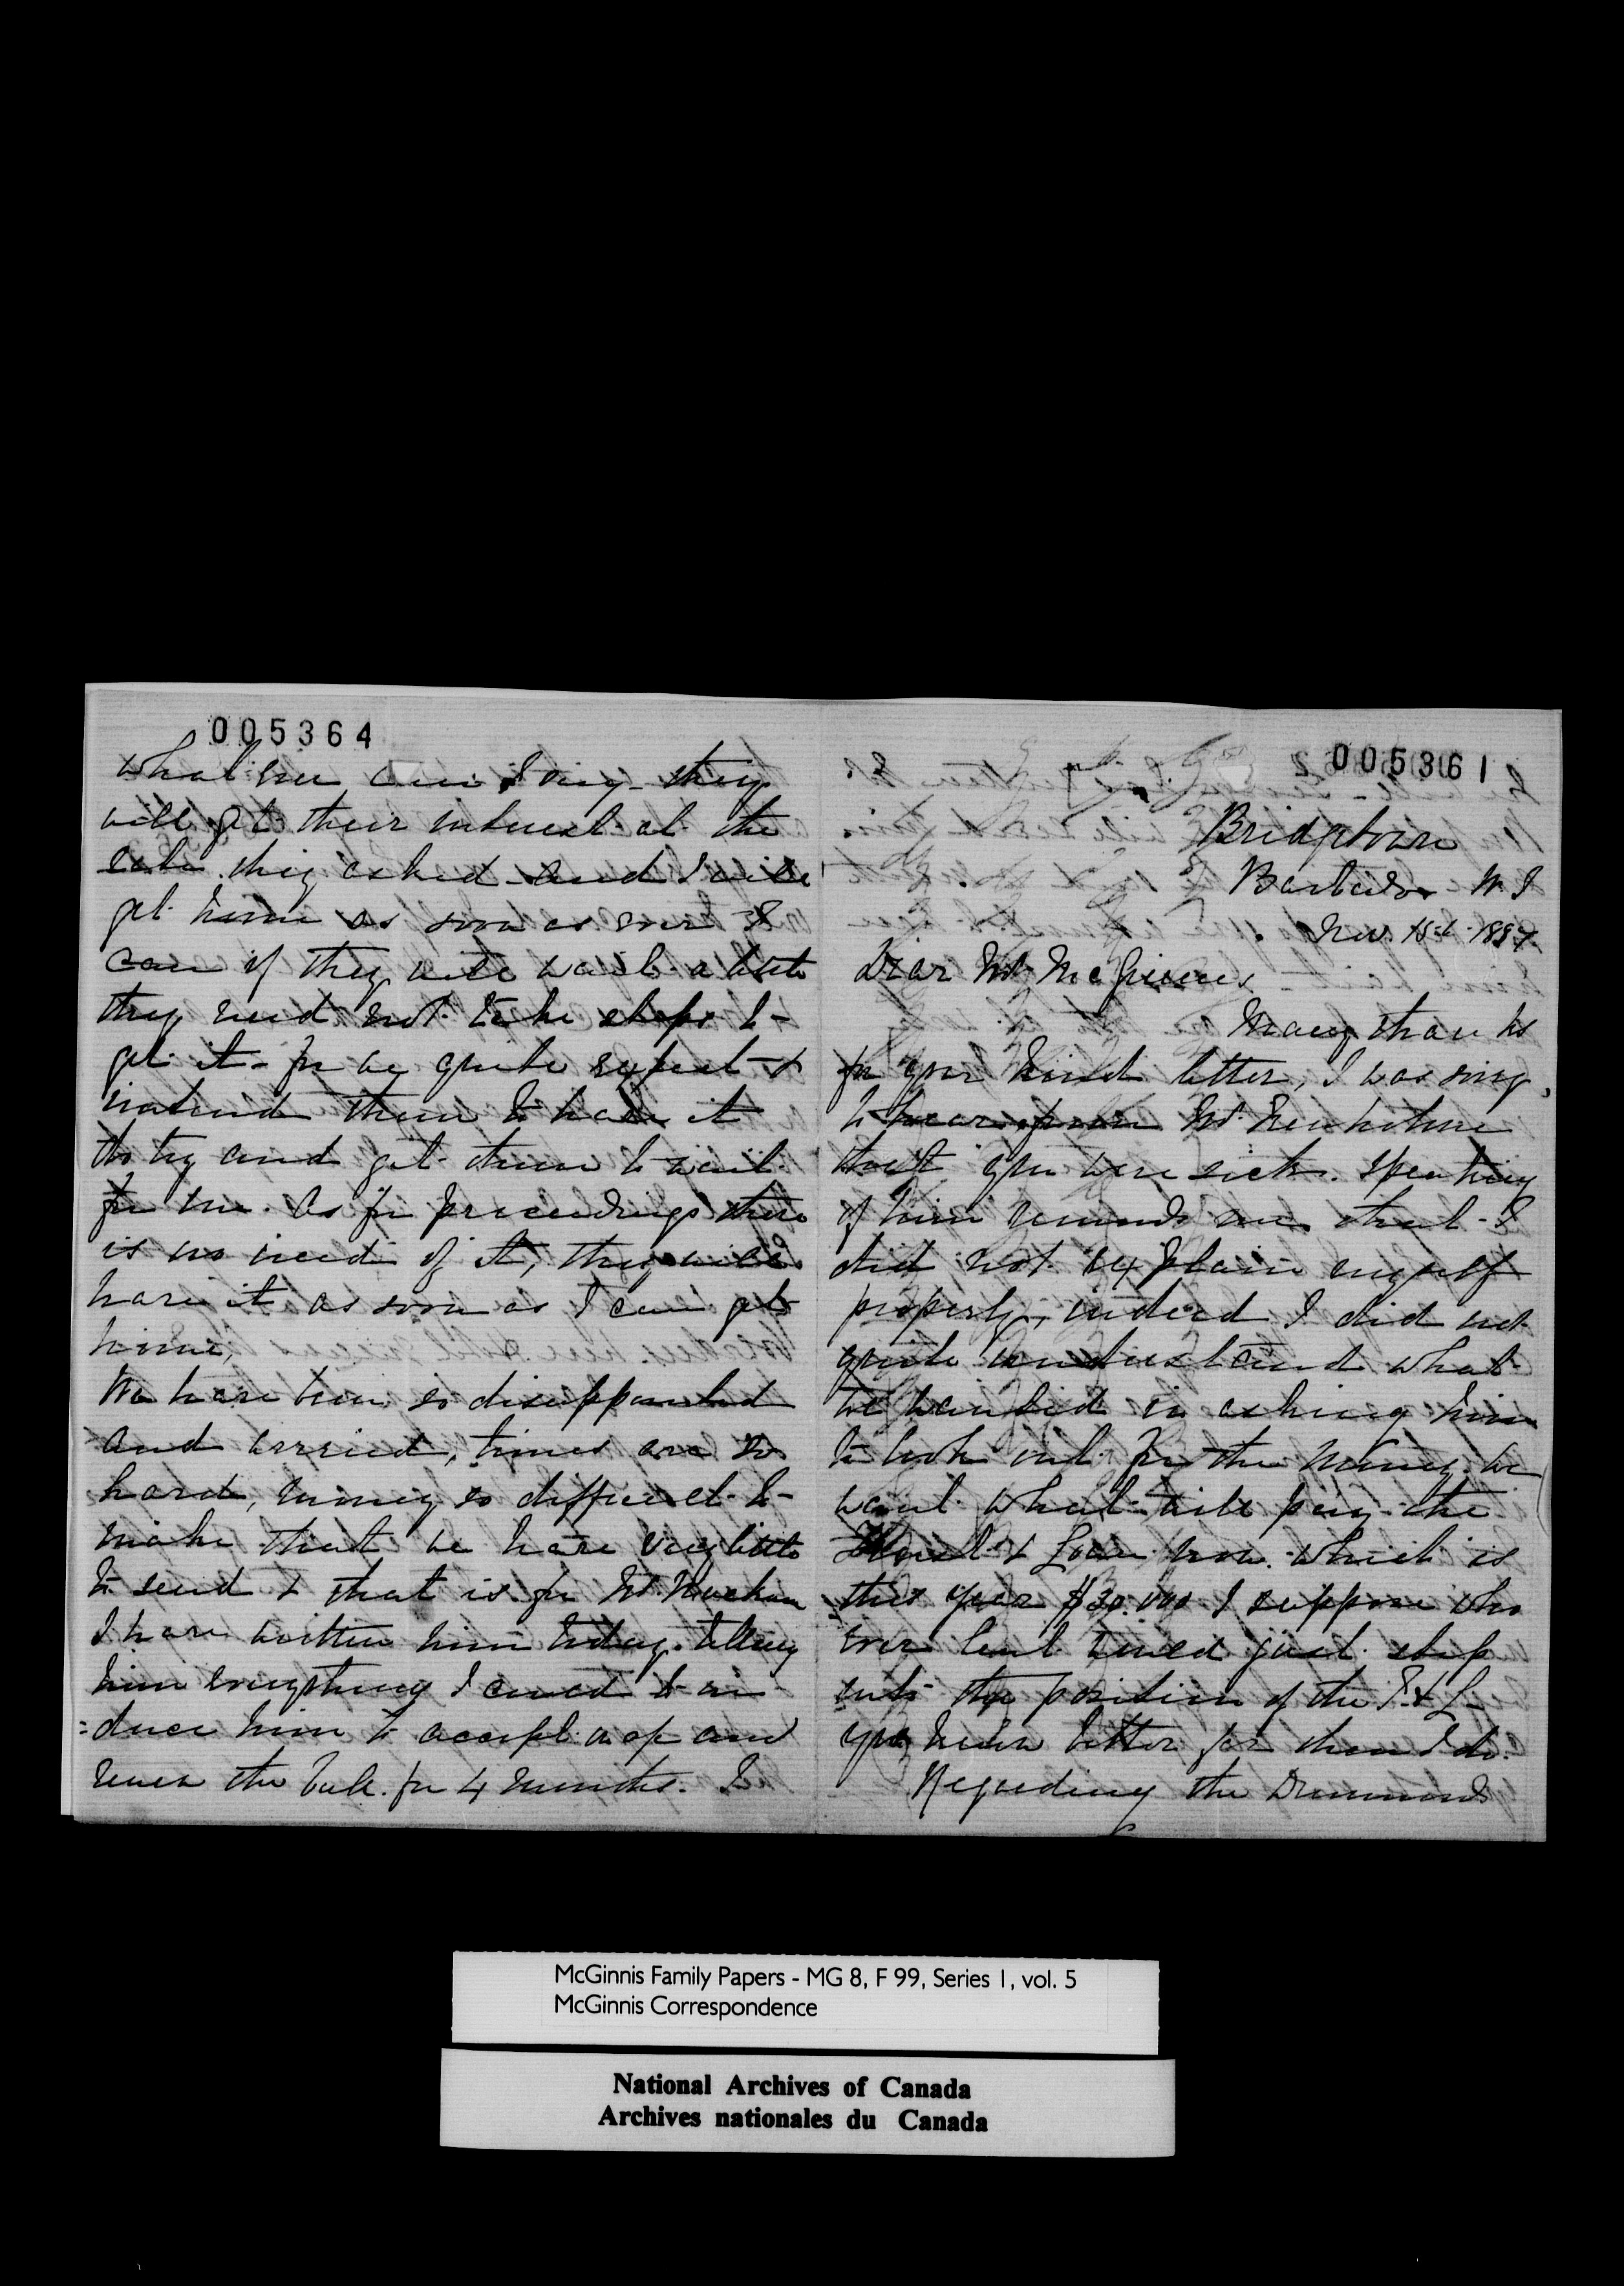 005364
what ever can I say they
will get their interest at the
rate they asked and I will
get home as soon as ever I
can if they will wait a little
they need not take steps to
get it for we quite expect &
intend them to have it
to try and get them to wait
for me. As for proceedings there
is no need of it, they will
have it as soon as I can get
home,
We have been so disappointed
and worried, times are so
hard, money so difficult to
make that we have very little
to send & that is for Mr.
I have written him today telling
him everything I could to in
=duce him to accept and
renew the bill for 4 months. I
005361
Bridgetown
Barbados W. I
Nov. 1887
Dear Mr. McGinnis
Many thanks
for your kind letter, I was sorry
to hear from Mr.
that you were sick. Speaking
of him reminds me that I
did not explain myself
properly, indeed I did not
quite understand what
we wanted in asking him
to look out for the money. We
want what will pay the
& Loan now which is
this year $30.000 I suppose who
ever lent it would just step
into the position of the T. & L
you know better far than I do.
Regarding the Drummond
McGinnis Family Papers - MG 8, F 99, Series 1, vol. 5
McGinnis Correspondence
National Archives of Canada
Archives nationales du Canada